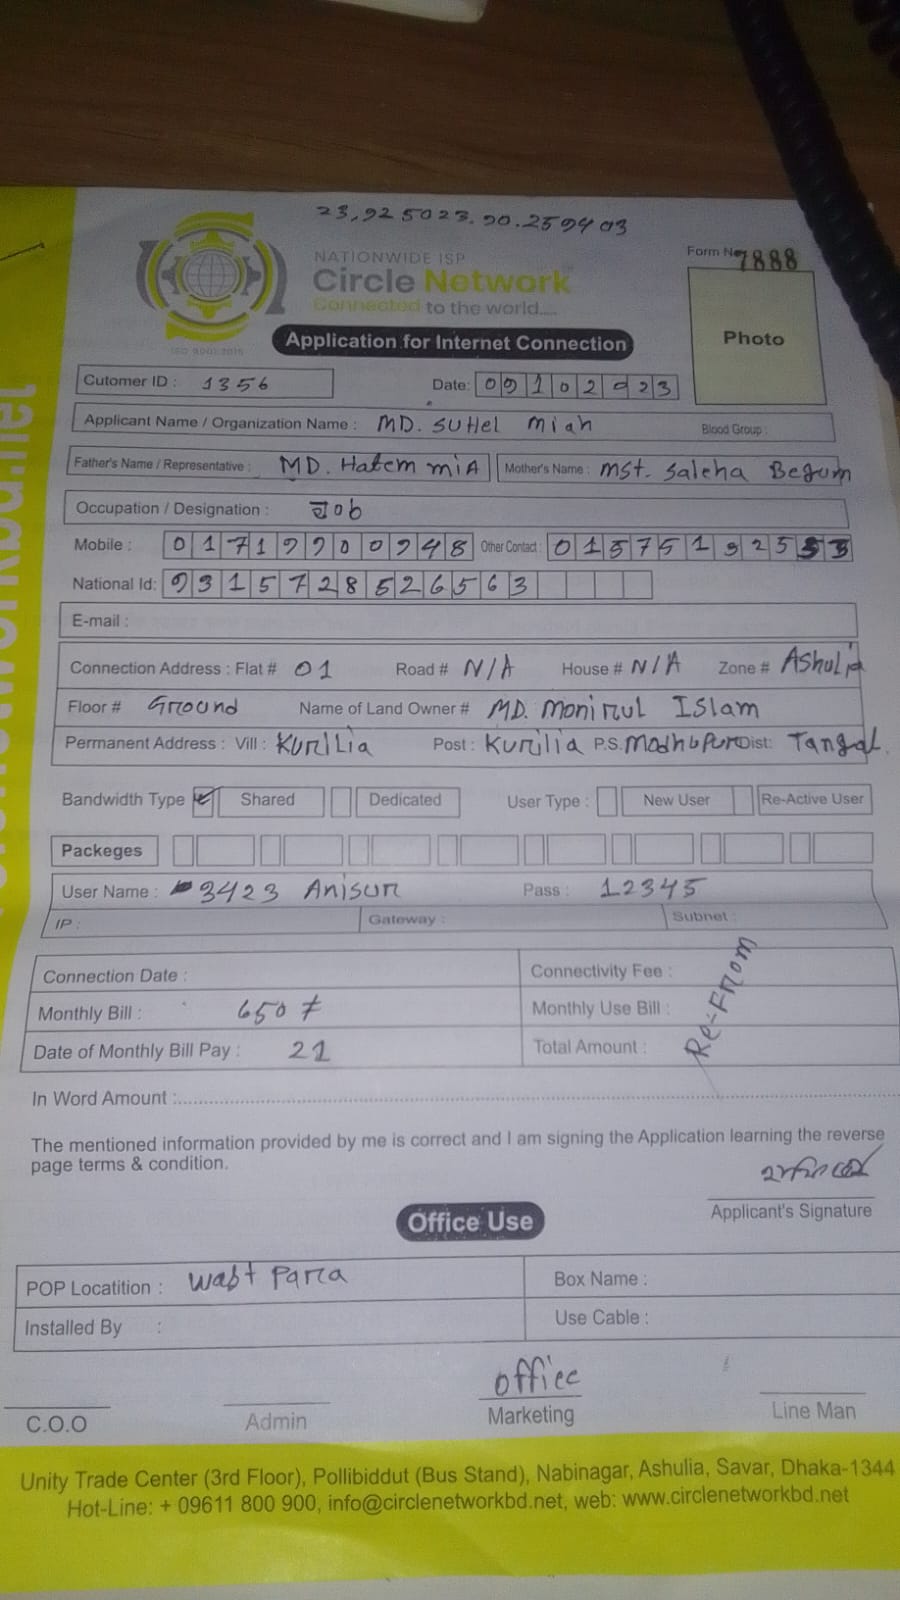 23.925023.90.259403
NATIONWIDE ISP
Circle Network
Connected to the world....
ISO 9001:2015
Form No 7888
Photo
Application for Internet Connection
Cutomer ID : 1356 Date: 09102023
Applicant Name / Organization Name : MD. SUHel Miah Blood Group :
Father's Name / Representative : MD. Hatem miA Mother's Name : Mst. Saleha Begum
Occupation / Designation : জব
Mobile : 01719990948 Other Contact : 01575192553
National Id: 9315728526563
E-mail :
Connection Address : Flat # 01 Road # N/A House # N/A Zone # Ashulia
Floor # Ground Name of Land Owner # MD. Monirul Islam
Permanent Address : Vill : Kurilia Post : Kurilia P.S. Modhupur Dist: Tangal
Bandwidth Type Shared Dedicated User Type : New User Re-Active User
Packeges
User Name : 3423 Anisur Pass : 12345
IP : Gateway : Subnet :
Connection Date : Connectivity Fee :
Monthly Bill : 650/= Monthly Use Bill :
Date of Monthly Bill Pay : 21 Total Amount :
Re-From
In Word Amount :
The mentioned information provided by me is correct and I am signing the Application learning the reverse
page terms & condition.
Applicant's Signature
Office Use
POP Locatition : Para Box Name :
Installed By : Use Cable :
office
C.O.O Admin Marketing Line Man
Unity Trade Center (3rd Floor), Pollibiddut (Bus Stand), Nabinagar, Ashulia, Savar, Dhaka-1344
Hot-Line: + 09611 800 900, info@circlenetworkbd.net, web: www.circlenetworkbd.net